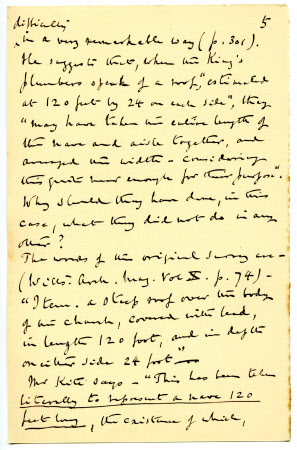 difficulty 5
in a very remarkable way (p. 301).
He suggests that, when the King's
plumbers speak of a roof, "estimated
at 120 feet by 24 on each side", they
"may have taken the entire length of
the nave and aisle together, and
averaged the width - considering
this quite near enough for their purpose".
Why should they have done, in this
case, what they did not do in any
other?
The words of the original survey are -
(Wilts. Arch. Mag. Vol X. p. 74) -
"Item. a steep roof over the body
of the Church, covered with lead,
in length 120 foot, and in depth
on either side 24 foot" -
Mr Kite says - "This has been taken
literally to represent a nave 120
feet long, the existence of which,